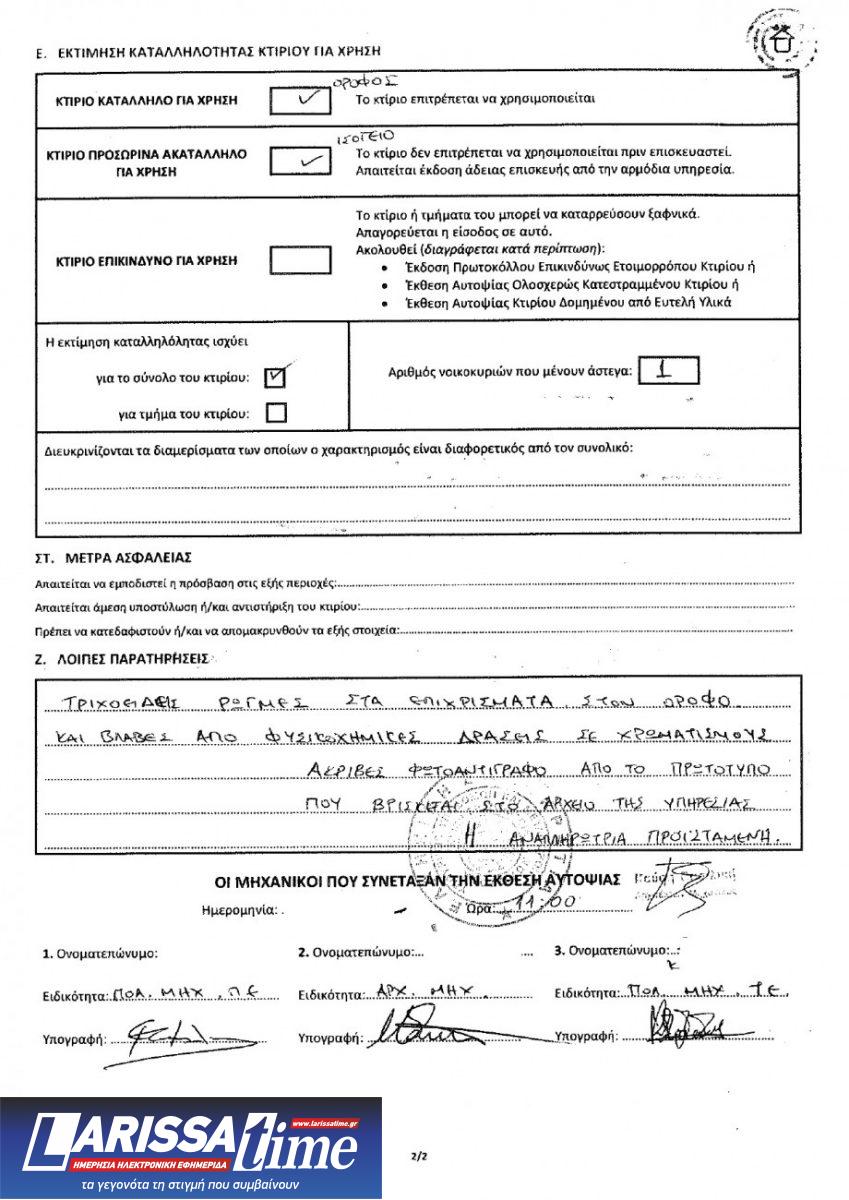 Ε. ΕΚΤΙΜΗΣΗ ΚΑΤΑΛΛΗΛΟΤΗΤΑΣ ΚΤΙΡΙΟΥ ΓΙΑ ΧΡΗΣΗ
ΟΡΟΦΟΣ
ΚΤΙΡΙΟ ΚΑΤΑΛΛΗΛΟ ΓΙΑ ΧΡΗΣΗ ✓ Το κτίριο επιτρέπεται να χρησιμοποιείται
ΙΣΟΓΕΙΟ
ΚΤΙΡΙΟ ΠΡΟΣΩΡΙΝΑ ΑΚΑΤΑΛΛΗΛΟ ΓΙΑ ΧΡΗΣΗ ✓
Το κτίριο δεν επιτρέπεται να χρησιμοποιείται πριν επισκευαστεί.
Απαιτείται έκδοση άδειας επισκευής από την αρμόδια υπηρεσία.
ΚΤΙΡΙΟ ΕΠΙΚΙΝΔΥΝΟ ΓΙΑ ΧΡΗΣΗ
Το κτίριο ή τμήματα του μπορεί να καταρρεύσουν ξαφνικά.
Απαγορεύεται η είσοδος σε αυτό.
Ακολουθεί (διαγράφεται κατά περίπτωση):
• Έκδοση Πρωτοκόλλου Επικινδύνως Ετοιμορρόπου Κτιρίου ή
• Έκθεση Αυτοψίας Ολοσχερώς Κατεστραμμένου Κτιρίου ή
• Έκθεση Αυτοψίας Κτιρίου Δομημένου από Ευτελή Υλικά
Η εκτίμηση καταλληλόλητας ισχύει
για το σύνολο του κτιρίου: ✓
για τμήμα του κτιρίου:
Αριθμός νοικοκυριών που μένουν άστεγα: 1
Διευκρινίζονται τα διαμερίσματα των οποίων ο χαρακτηρισμός είναι διαφορετικός από τον συνολικό:
ΣΤ. ΜΕΤΡΑ ΑΣΦΑΛΕΙΑΣ
Απαιτείται να εμποδιστεί η πρόσβαση στις εξής περιοχές:
Απαιτείται άμεση υποστύλωση ή/και αντιστήριξη του κτιρίου:
Πρέπει να κατεδαφιστούν ή/και να απομακρυνθούν τα εξής στοιχεία:
Ζ. ΛΟΙΠΕΣ ΠΑΡΑΤΗΡΗΣΕΙΣ
ΤΡΙΧΟΕΙΔΕΙΣ ΡΩΓΜΕΣ ΣΤΑ ΕΠΙΧΡΙΣΜΑΤΑ ΣΤΟΝ ΟΡΟΦΟ
ΚΑΙ ΒΛΑΒΕΣ ΑΠΟ ΦΥΣΙΚΟΧΗΜΙΚΕΣ ΔΡΑΣΕΙΣ ΣΕ ΧΡΩΜΑΤΙΣΜΟΥΣ
ΑΚΡΙΒΕΣ ΦΩΤΟΑΝΤΙΓΡΑΦΟ ΑΠΟ ΤΟ ΠΡΩΤΟΤΥΠΟ
ΠΟΥ ΒΡΙΣΚΕΤΑΙ ΣΤΟ ΑΡΧΕΙΟ ΤΗΣ ΥΠΗΡΕΣΙΑΣ
Η ΑΝΑΠΛΗΡΩΤΡΙΑ ΠΡΟΙΣΤΑΜΕΝΗ.
ΟΙ ΜΗΧΑΝΙΚΟΙ ΠΟΥ ΣΥΝΕΤΑΞΑΝ ΤΗΝ ΕΚΘΕΣΗ ΑΥΤΟΨΙΑΣ
Ημερομηνία: Ώρα: 11:00
1. Ονοματεπώνυμο: 2. Ονοματεπώνυμο: 3. Ονοματεπώνυμο:
Ειδικότητα: ΠΟΛ. ΜΗΧ. Π.Ε Ειδικότητα: ΑΡΧ. ΜΗΧ. Ειδικότητα: ΠΟΛ ΜΗΧ. Τ.Ε.
Υπογραφή: Υπογραφή: Υπογραφή:
www.larissatime.gr
LARISSAtime
ΗΜΕΡΗΣΙΑ ΗΛΕΚΤΡΟΝΙΚΗ ΕΦΗΜΕΡΙΔΑ
τα γεγονότα τη στιγμή που συμβαίνουν
2/2